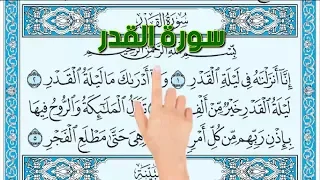 سُورَةُ القَدْرِ
سورة القدر
بِسْمِ ٱللَّهِ ٱلرَّحْمَٰنِ ٱلرَّحِيمِ
إِنَّآ أَنزَلْنَٰهُ فِى لَيْلَةِ ٱلْقَدْرِ أَدْرَىٰكَ مَا لَيْلَةُ ٱلْقَدْرِ
لَيْلَةُ ٱلْقَدْرِ خَيْرٌ مِّنْ ٱلْمَلَٰٓئِكَةُ وَٱلرُّوحُ فِيهَا
بِإِذْنِ رَبِّهِم مِّن كُلِّ هِىَ حَتَّىٰ مَطْلَعِ ٱلْفَجْرِ